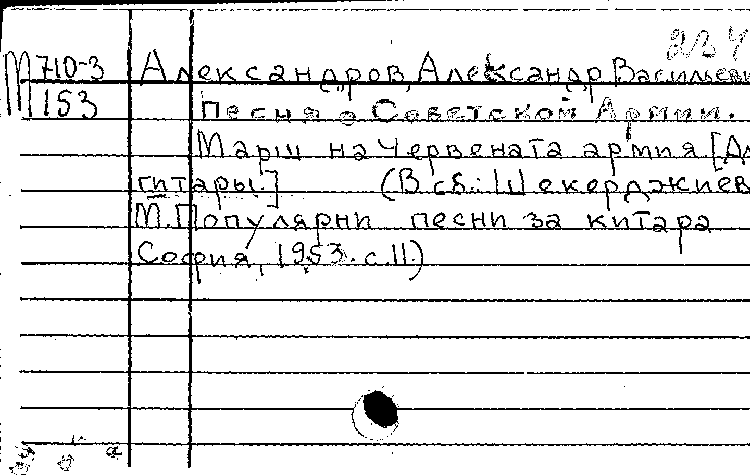 234
М 710-3 Александров, Александр Васильеви
153 Песня о Советской Армии.
Марш на Червената армия [Дл
гитары.] (В сб.: Шекерджиев
М. Популярни песни за китара
София, 1953. с.11.)